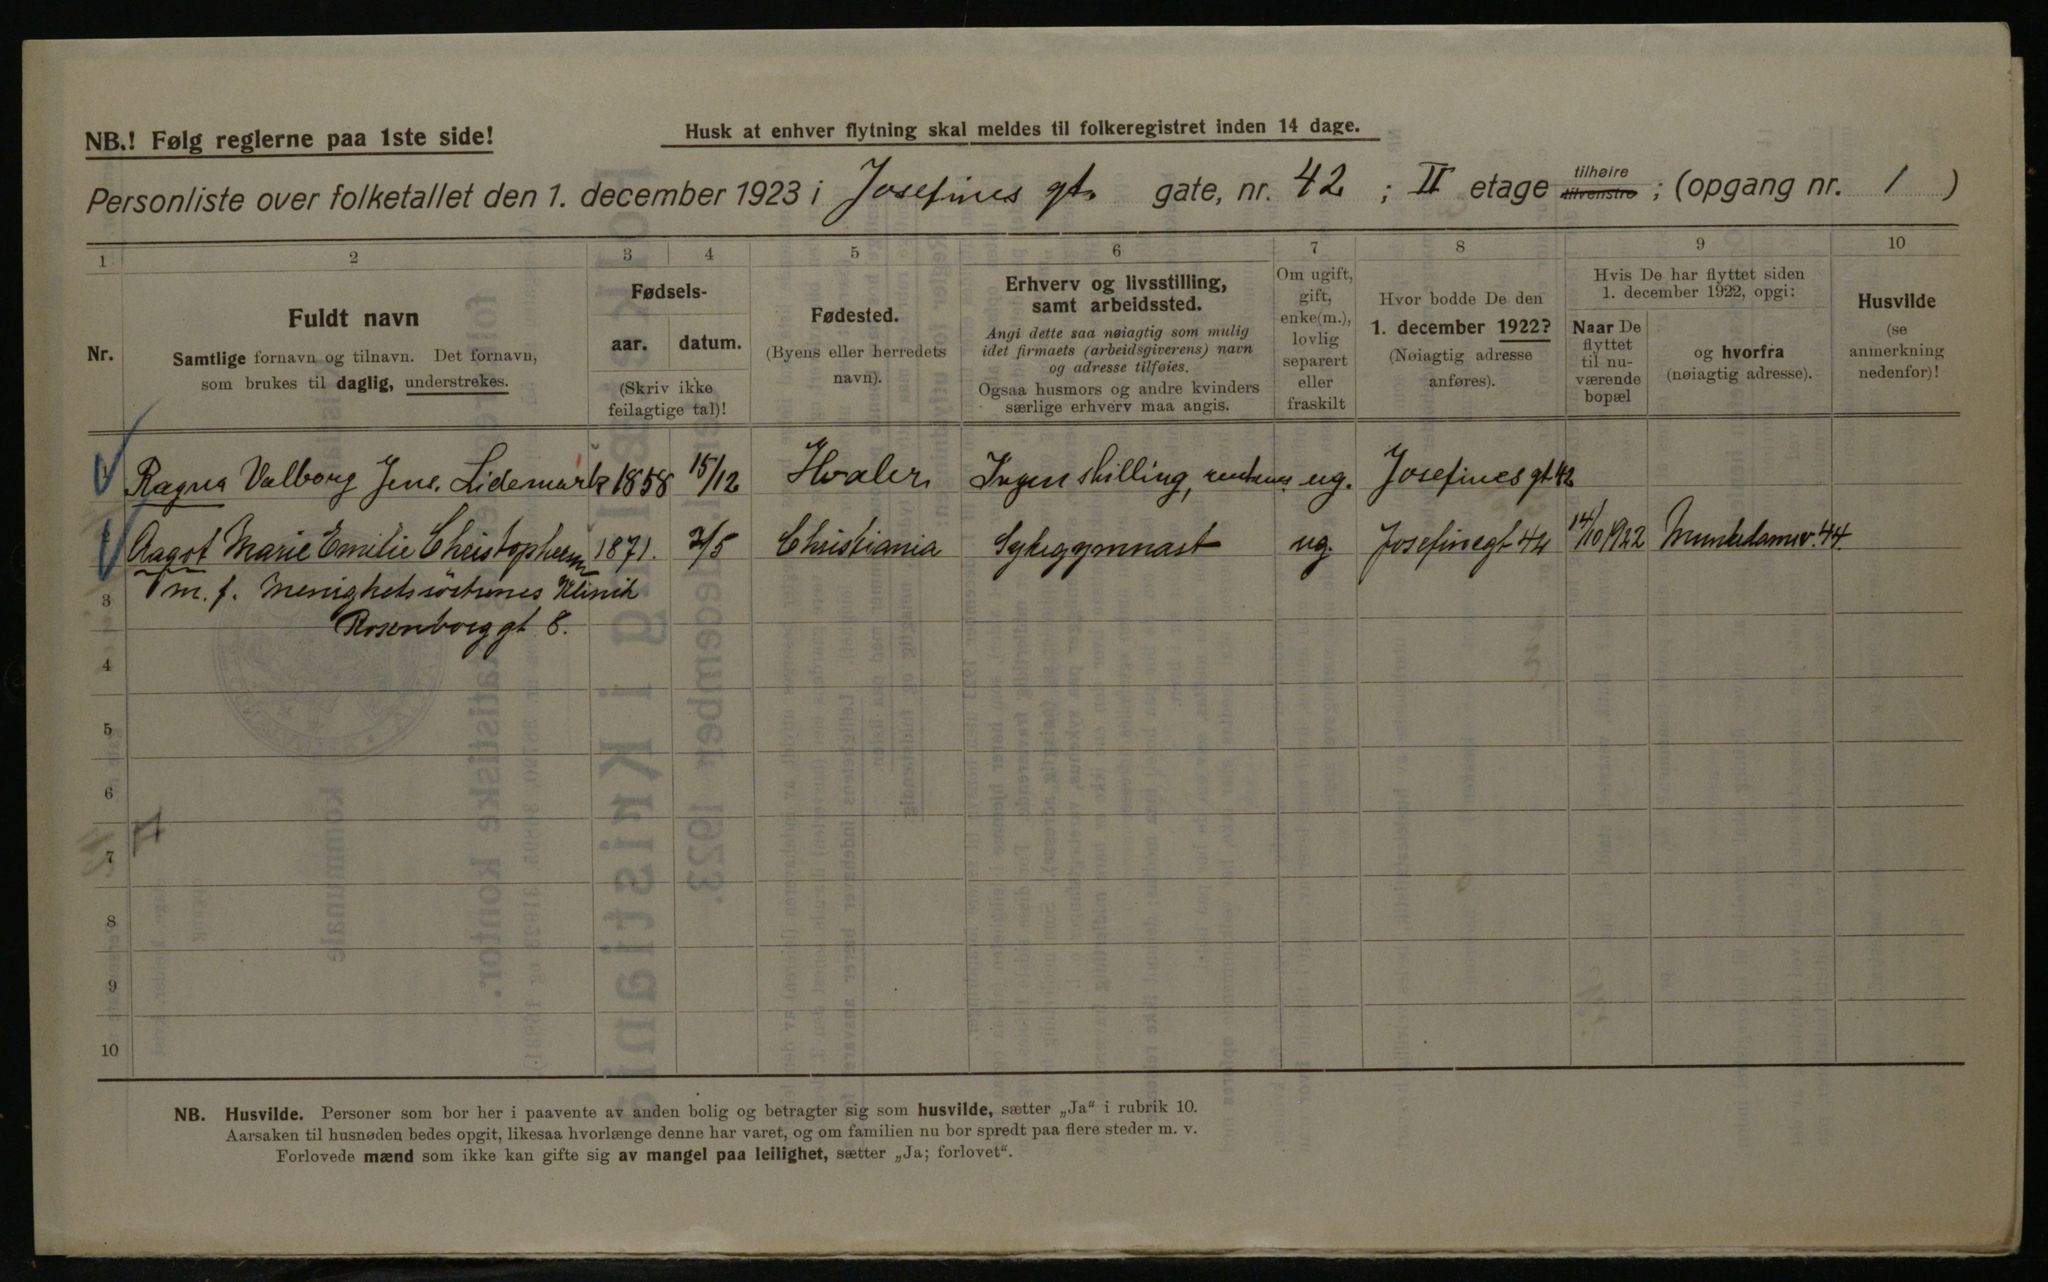 NB.! Følg reglerne paa 1ste side!
Husk at enhver flytning skal meldes til folkeregistret inden 14 dage.
Personliste over folketallet den 1. december 1923 i Josefines gt. gate, nr. 42 ; II etage tilhøire tilvenstre ; (opgang nr. 1 )
1 2 3 4 5 6 7 8 9 10
Nr.
Fuldt navn
Samtlige fornavn og tilnavn. Det fornavn,
som brukes til daglig, understrekes.
Fødsels-
aar. datum.
(Skriv ikke
feilagtige tal)!
Fødested.
(Byens eller herredets
navn).
Erhverv og livsstilling,
samt arbeidssted.
Angi dette saa nøiagtig som mulig
idet firmaets (arbeidsgiverens) navn
og adresse tilføies.
Ogsaa husmors og andre kvinders
særlige erhverv maa angis.
Om ugift,
gift,
enke(m.),
lovlig
separert
eller
fraskilt
Hvor bodde De den
1. december 1922?
(Nøiagtig adresse
anføres).
Hvis De har flyttet siden
1. december 1922, opgi:
Naar De
flyttet
til nu-
værende
bopæl
og hvorfra
(nøiagtig adresse).
Husvilde
(se
anmerkning
nedenfor)!
1 Ragna Valborg Jene. Lidemark 1858 15/12 Hvaler. Ingen stilling, ug. Josefines gt 42
2 Aagot Marie Emilie Christophersen 1871. 2/5 Christiania Sykegymnast ug. Josefinegt 42 14/10 1922 Munkedamsv. 44.
3 m. f. Menighetssøstrenes Klinik
Rosenborggt 8.
4
5
6
7
8
9
10
NB. Husvilde. Personer som bor her i paavente av anden bolig og betragter sig som husvilde, sætter „Ja“ i rubrik 10.
Aarsaken til husnøden bedes opgit, likesaa hvorlænge denne har varet, og om familien nu bor spredt paa flere steder m. v.
Forlovede mænd som ikke kan gifte sig av mangel paa leilighet, sætter „Ja; forlovet“.